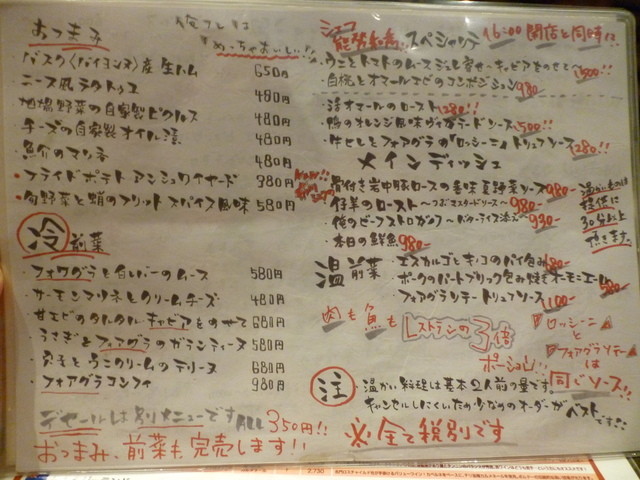 おつまみ
俺フレは
めっちゃおいしい!!
バスク〈バイヨンヌ〉産生ハム 650円
ニース風ラタトゥユ 480円
地場野菜の自家製ピクルス 480円
チーズの自家製オイル漬 480円
魚介のマリネ 480円
フライドポテト アンショワイヤード 380円
旬野菜と蛸のフリット スパイス風味 580円
冷 前菜
フォワグラと白レバーのムース 580円
サーモンマリネとクリームチーズ 480円
甘エビのタルタル キャビアをのせて 680円
うさぎとフォアグラのガランティーヌ 580円
穴子とうにクリームのテリーヌ 680円
フォアグラコンフィ 980円
デセールは別メニューです ALL 350円!!
おつまみ、前菜も完売します!!
シェフ 能勢和秀 スペシャリテ 16:00 開店と同時!!
うにとトマトのムース ジュレ寄せ キャビアをのせて
白桃とオマールエビのコンポジション 980
活オマールのロースト 1280!!
鴨のオレンジ風味 ソース 1500!!
牛ヒレとフォアグラの『ロッシーニ』トリュフソース 1280!!
メインディッシュ
骨付き岩中豚ロースの 夏野菜ソース 980
仔羊のロースト ～つぶマスタードソース～ 980
俺のビーフストロガノフ ～バターライス添え～ 930
本日の鮮魚 980
温かいものは
提供に
30分以上
頂きます。
温 前菜
エスカルゴとキノコのパイ包み 680
ポークのパートブリック包み焼き オーモニエール 580
フォアグラソテー トリュフソース 1100
肉も魚も
レストランの3倍
ポーション!!
ロッシーニ
と
フォアグラソテー
は
同じソース!!
注
温かい料理は基本2人前の量です。
キャンセルしにくいため少なめのオーダーがベストです!!
※全て税別です